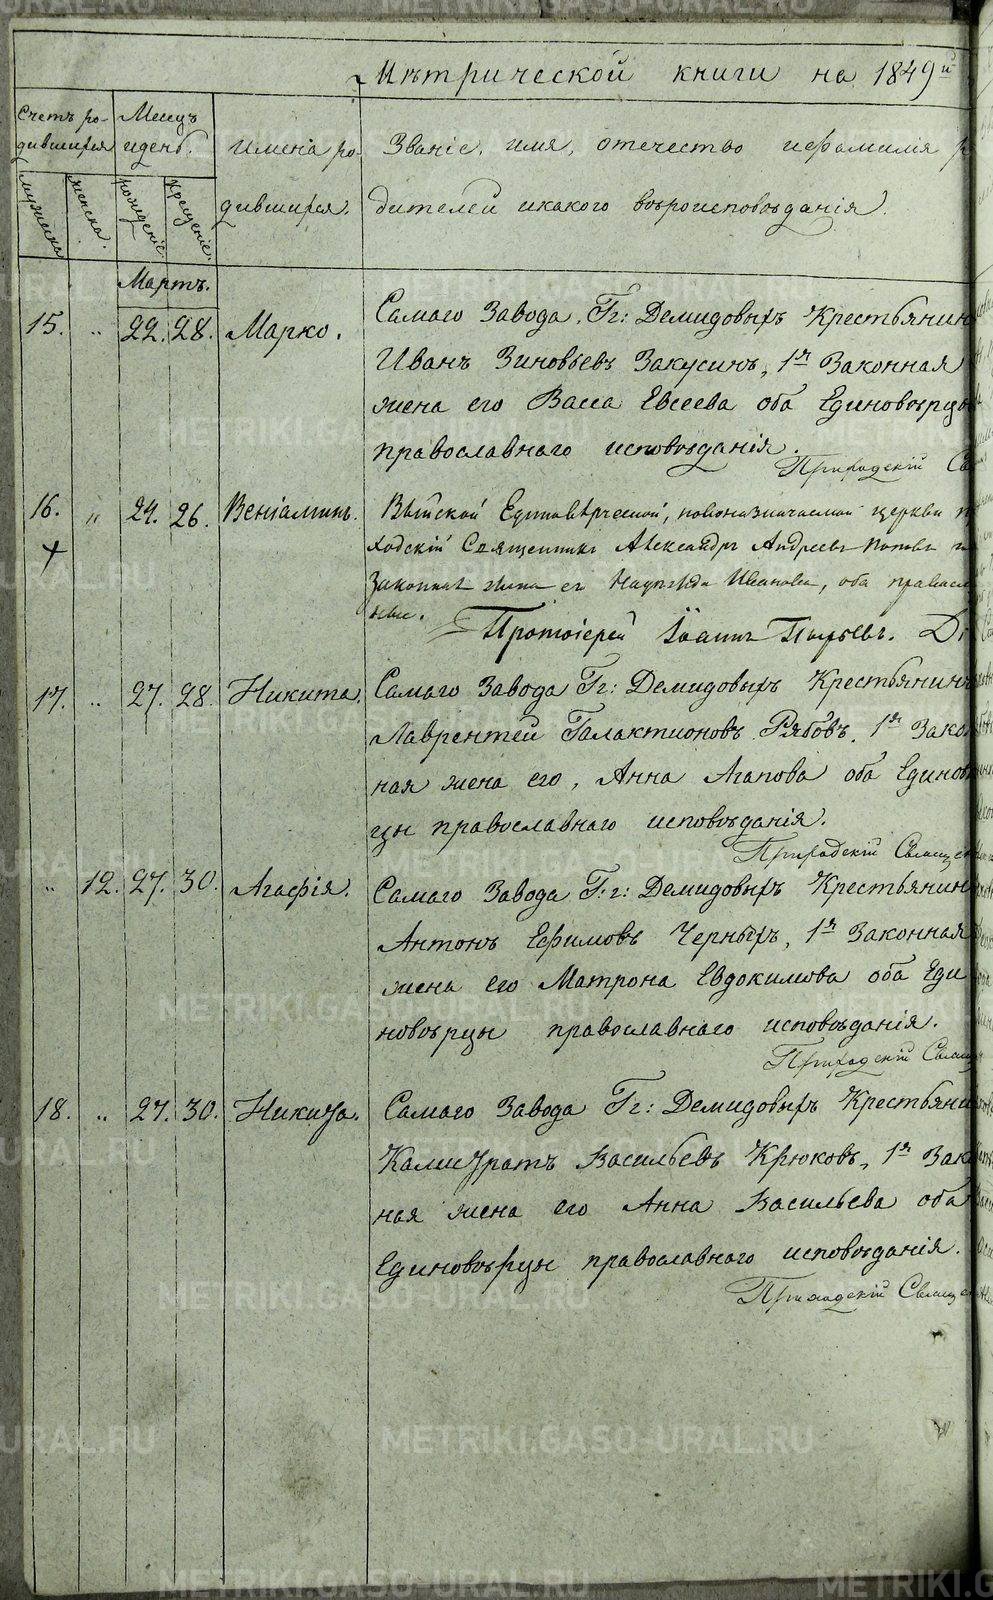 Мѣтрической книги на 1849й
Счетъ ро-
дившихся
Месяцъ
и день.
Имена ро-
дившихся.
Званіе, имя, отечество и фамилія р
дителей и какого вѣроисповѣданія.
мужеска
женска.
рожденіе
крещеніе.
Мартъ.
15. " 22. 28. Марко.
Самаго Завода. Гг: Демидовыхъ Крестьянин
Иванъ Зиновьевъ Закусинъ, 1я Законная
жена его Васса Евсеева оба Единовѣрцы
православнаго исповѣданія.
Приходскій Св
16. " 24. 26. Веніаминъ.
Выйской Единовѣрческой, новоназначаемой церкви п
ходскій Священникъ Александръ Андреевъ Поповъ
Законная жена ег Надежда Иванова, оба правосл
ные.
Протоіерей Іоаннъ Пырьевъ. Ді
17. " 27. 28. Никита.
Самаго Завода Гг: Демидовыхъ Крестьянинъ
Лаврентей Галактионовъ Рябовъ. 1я Закон
ная жена его, Анна Агапова оба Единовѣ
цы православнаго исповѣданія.
Приходскій Священ
" 12. 27. 30. Агафія.
Самаго Завода Гг: Демидовыхъ Крестьянин
Антонъ Ефимовъ Черныхъ, 1я Законная
жена его Матрона Евдокимова оба Еди
новѣрцы православнаго исповѣданія.
Приходскій Священ
18. " 27. 30. Никита.
Самаго Завода Гг: Демидовыхъ Крестьяни
Калистратъ Васильевъ Крюковъ, 1я Зак
ная жена его Анна Васильева оба
Единовѣрцы православнаго исповѣданія.
Приходскій Священ
METRIKI.GASO-URAL.RU